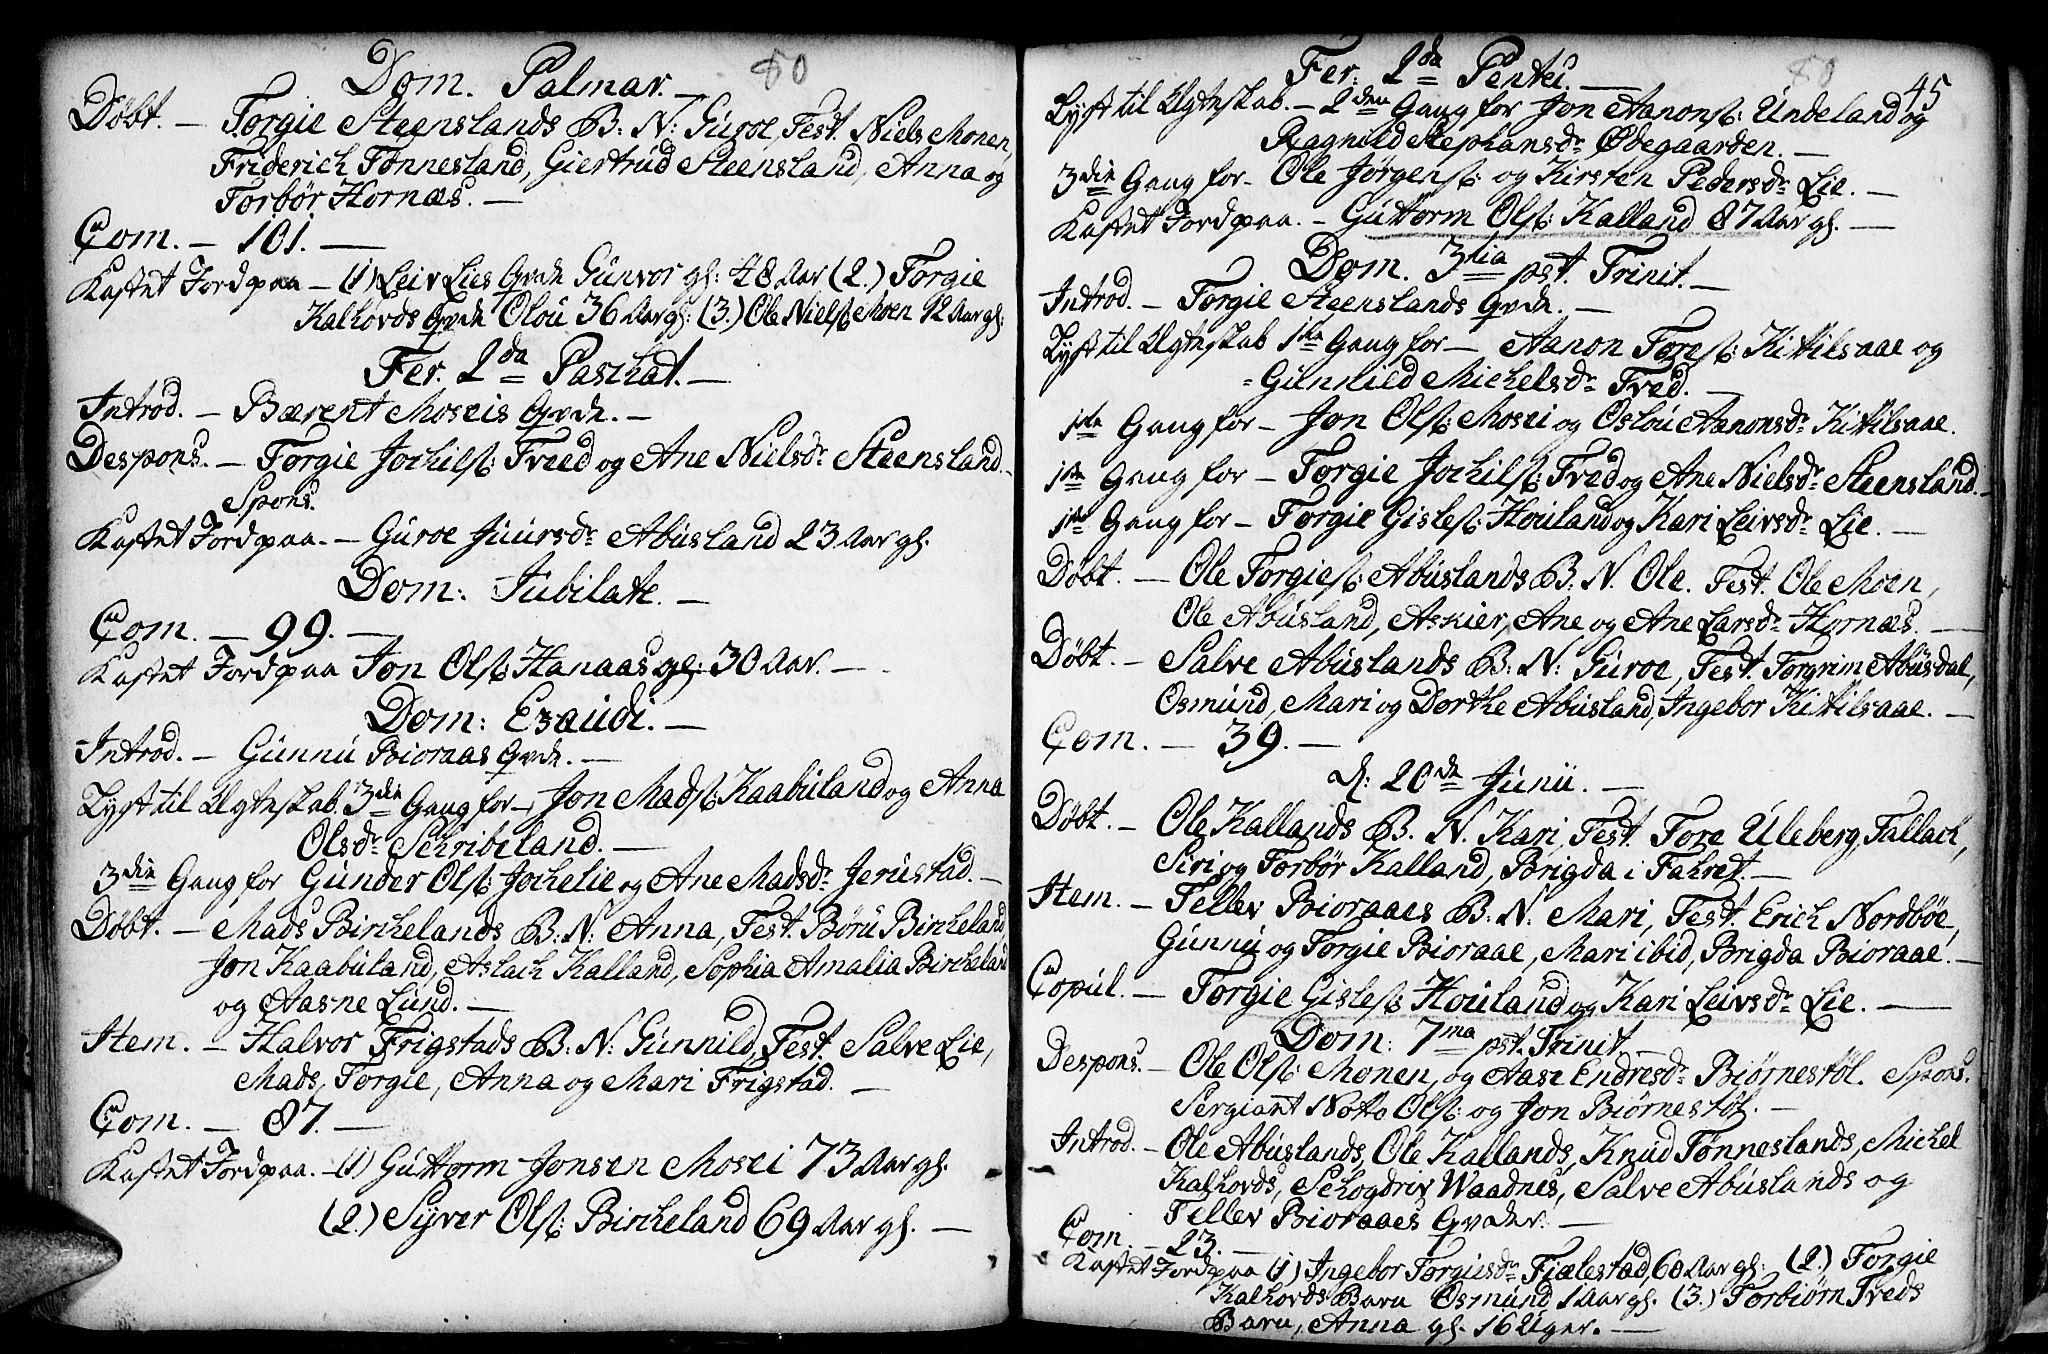 80
Dom. Palmar. —
Døbt. — Torgie Steenslands B: N: Guroe, Test. Niels Monen,
Friderich Tønnesland, Giertrud Steensland, Anna og
Torbør Hornæs. —
Com. — 101. —
Kastet Jord paa — (1) Leiv Lies Qvde Gunvor gl: 48 Aar (2.) Torgie
Kalhovds Qvde Olou 36 Aar gl: (3.) Ole Nielsß: Moen 92 Aar gl:
Fer. 2da Paschat. —
Introd. — Bærent Moseis Qvde. —
Despons. — Torgie Jochilsß: Tveed og Ane Nielsdr Steensland. —
Spons.
Kastet Jord paa. — Guroe Juursdr Abusland 23 Aar gl.
Dom: Jubilate. —
Com. — 99. —
Kastet Jord paa Jon Olsß: Hanaas gl: 30 Aar. —
Dom: Exaudi. —
Introd. — Gunnu Bioraas Qvde. —
Lyst til Ægteskab 3die Gang for — Jon Madsß: Kaabuland og Anna
Olsdr Schribeland. —
3die Gang for Gunder Olsß: Jochelie og Ane Madsdr Jerustad. —
Døbt. — Mads Birchelands B: N: Anna, Test. Børu Bircheland,
Jon Kaabuland, Aslach Kalland, Sophia Amalia Bircheland
og Aasne Lund. —
Item. — Halvor Frigstads B: N: Gunnild, Test. Salve Lie,
Mads, Torgie, Anna og Mari Frigstad. —
Com. — 87. —
Kastet Jord paa. — (1) Guttorm Jonsen Mosei 73 Aar gl.
(2.) Syver Olsß: Bircheland 69 Aar gl. —
80
45
Fer: 2da Pentec. —
Lyst til Ægteskab. — 2den Gang for Jon Aanonsß: Undeland og
Ragnild Stephansdr Ødegaarden. —
3die Gang for — Ole Jørgensß: og Kirsten Pedersdr Lie. —
Kastet Jord paa. — Guttorm Olsß: Kalland 87 Aar gl. —
Dom. 3tia pst. Trinit. —
Introd. — Torgie Steenslands Qvde. —
Lyst til Ægteskab 1ste Gang for — Aanon Toresß: Kittilsaae og
= Gunnild Michelsdr Tved. —
1ste Gang for — Jon Olsß: Mosei og Oslou Aanonsdr Kittilsaae.
1ste Gang for — Torgie Jochilsß: Tved og Ane Nielsdr Steensland. —
1ste Gang for — Torgie Gislesß: Houland og Kari Leivsdr Lie. —
Døbt. — Ole Torgiesß: Abuslands B. N. Ole. Test. Ole Moen,
Ole Abusland, Askier, Ane og Ane Larsdr Hornæs. —
Døbt. — Salve Abuslands B: N: Guroe, Test. Torgrim Abusdal,
Osmund, Mari og Dorthe Abusland, Ingebor Kittilsaae. —
Com. — 39. —
d: 20de Junii. —
Døbt. — Ole Kallands B. N. Kari, Test. Tore Uleberg, Tallach,
Siri og Torbør Kalland, Brigda i Fahret. —
Item. — Tellev Bioraaes B: N: Mari, Test. Erich Nordbøe,
Gunnu og Torgie Bioraae, Mari ibid, Brigda Bioraae. —
Copul. — Torgie Gislesß: Houland og Kari Leivsdr Lie. —
Dom: 7ma pst. Trinit —
Despons. — Ole Olsß: Monen, og Aase Endresdr Biørnestøl. Spons.
Sergiant Notto Olsß: og Jon Biørnestøl. —
Introd. — Ole Abuslands, Ole Kallands, Knud Tønneslands, Michel
Kalhovds, Schogdriv Waadnes, Salve Abuslands og
Tellev Bioraaes Qvder. —
Com. — 23. —
Kastet Jord paa (1) Ingebor Torgiusdr Fiælestad, 60 Aar gl: (2.) Torgie
Kalhovds Barn Osmund 1 Aar gl. (3.) Torbiørn Tveds
Barn, Anna gl. 16 Uger. —